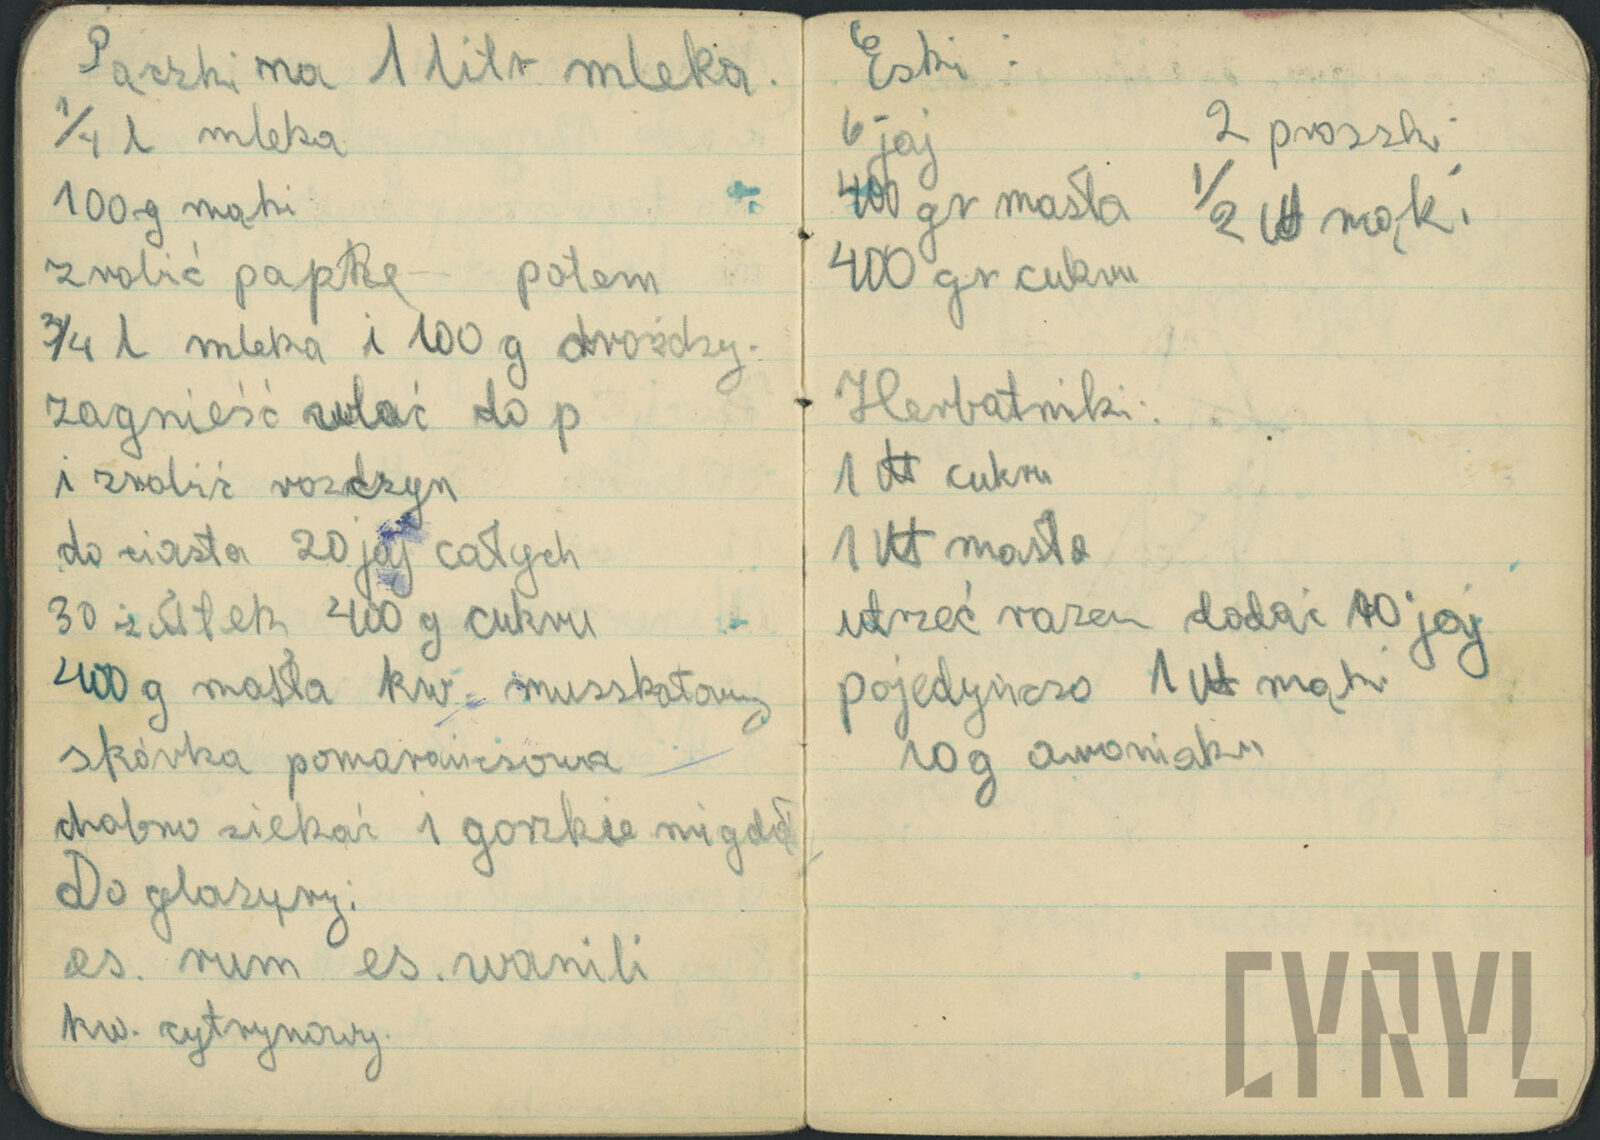 Pączki na 1 litr mleka.
1/4 l mleka
100 g mąki
zrobić papkę – potem
3/4 l mleka i 100 g drożdzy.
zagnieść wlać do p
i zrobić rozczyn
do ciasta 20 jaj całych
30 żółtek 400 g cukru
400 g masła kw. musskatowy
skórka pomarańczowa
drobno siekać i gorzkie migdał
Do glazury:
es. rum es. wanili
kw. cytrynowy.
Eski :
6 jaj
2 proszki
400 gr masła
1/2 ℔ mąki
400 gr cukru
Herbatniki:
1 ℔ cukru
1 ℔ masła
utrzeć razem dodać 10 jaj
pojedyńczo 1 ℔ mąki
10 g amoniaku
CYRYL